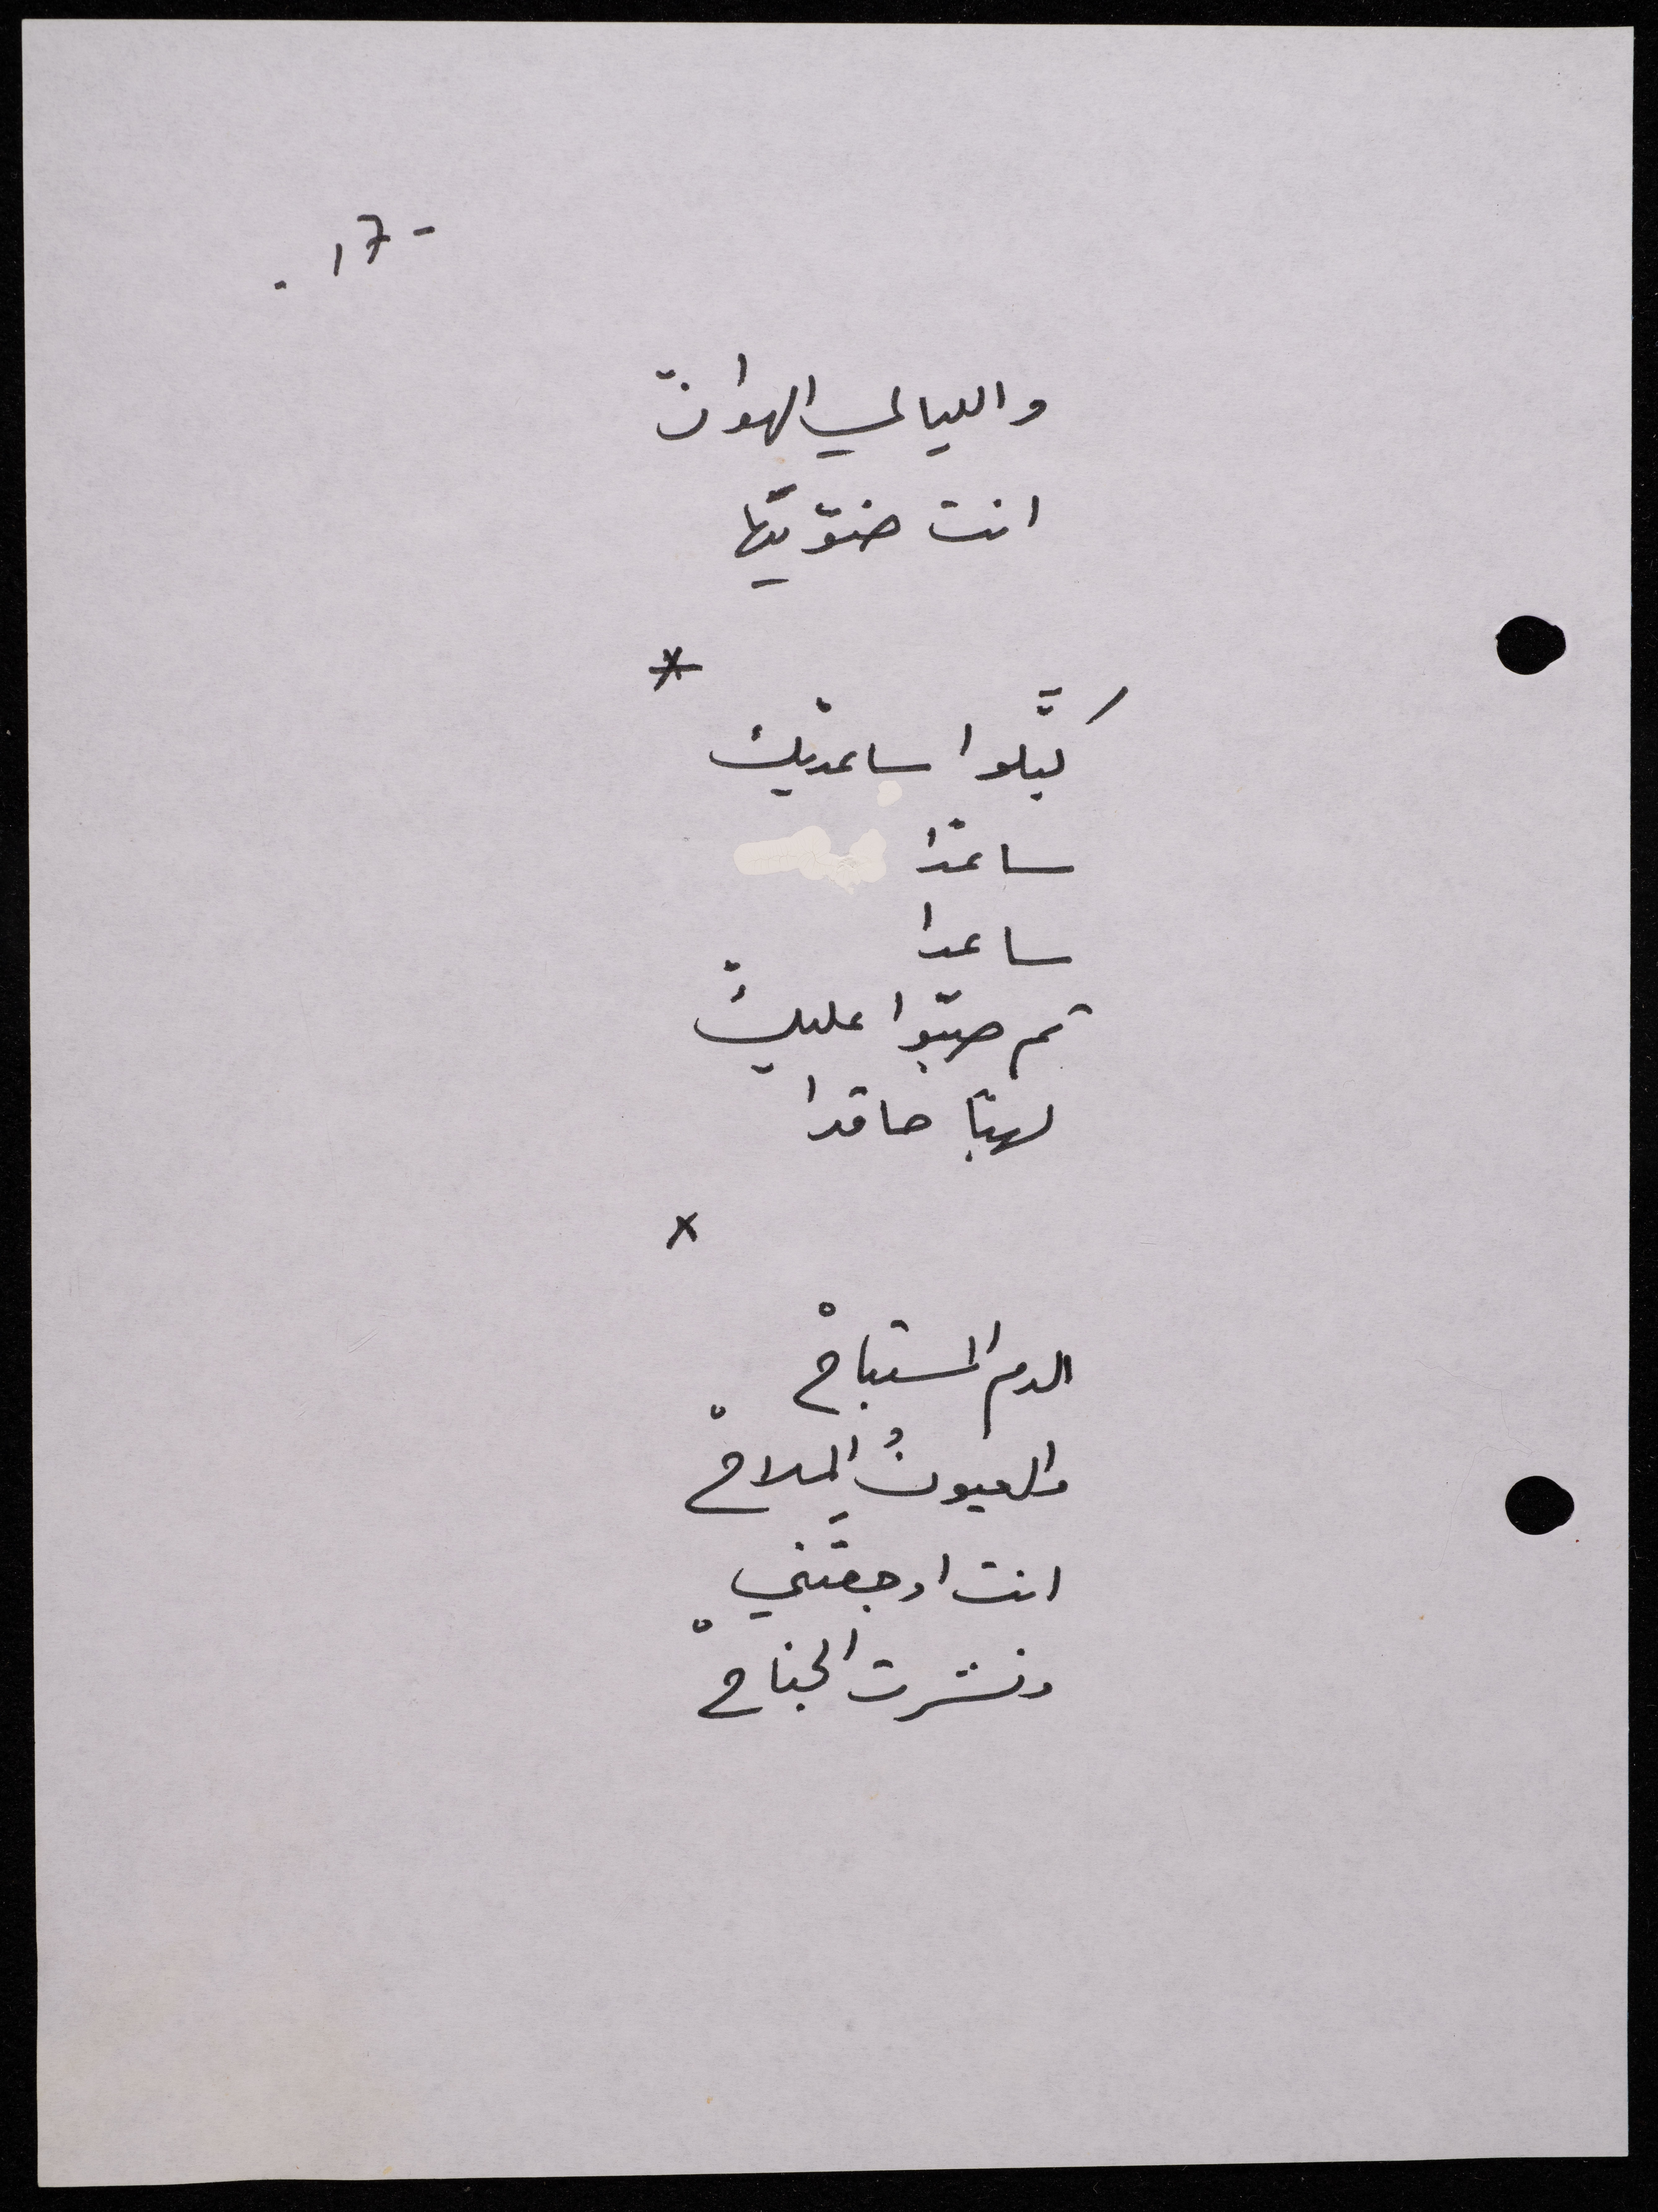 - 17 .
والليالي الهوانْ
انت ضوّيتَها
*
كبَّلوا ساعديكْ
ساعدًا
ساعدا
ثم صبّوا عليكْ
لهبًا حاقدا
x
الدم المستباحْ
والعيونُ المِلاحْ
انت اوجعتَني
ونشرت الجناحْ